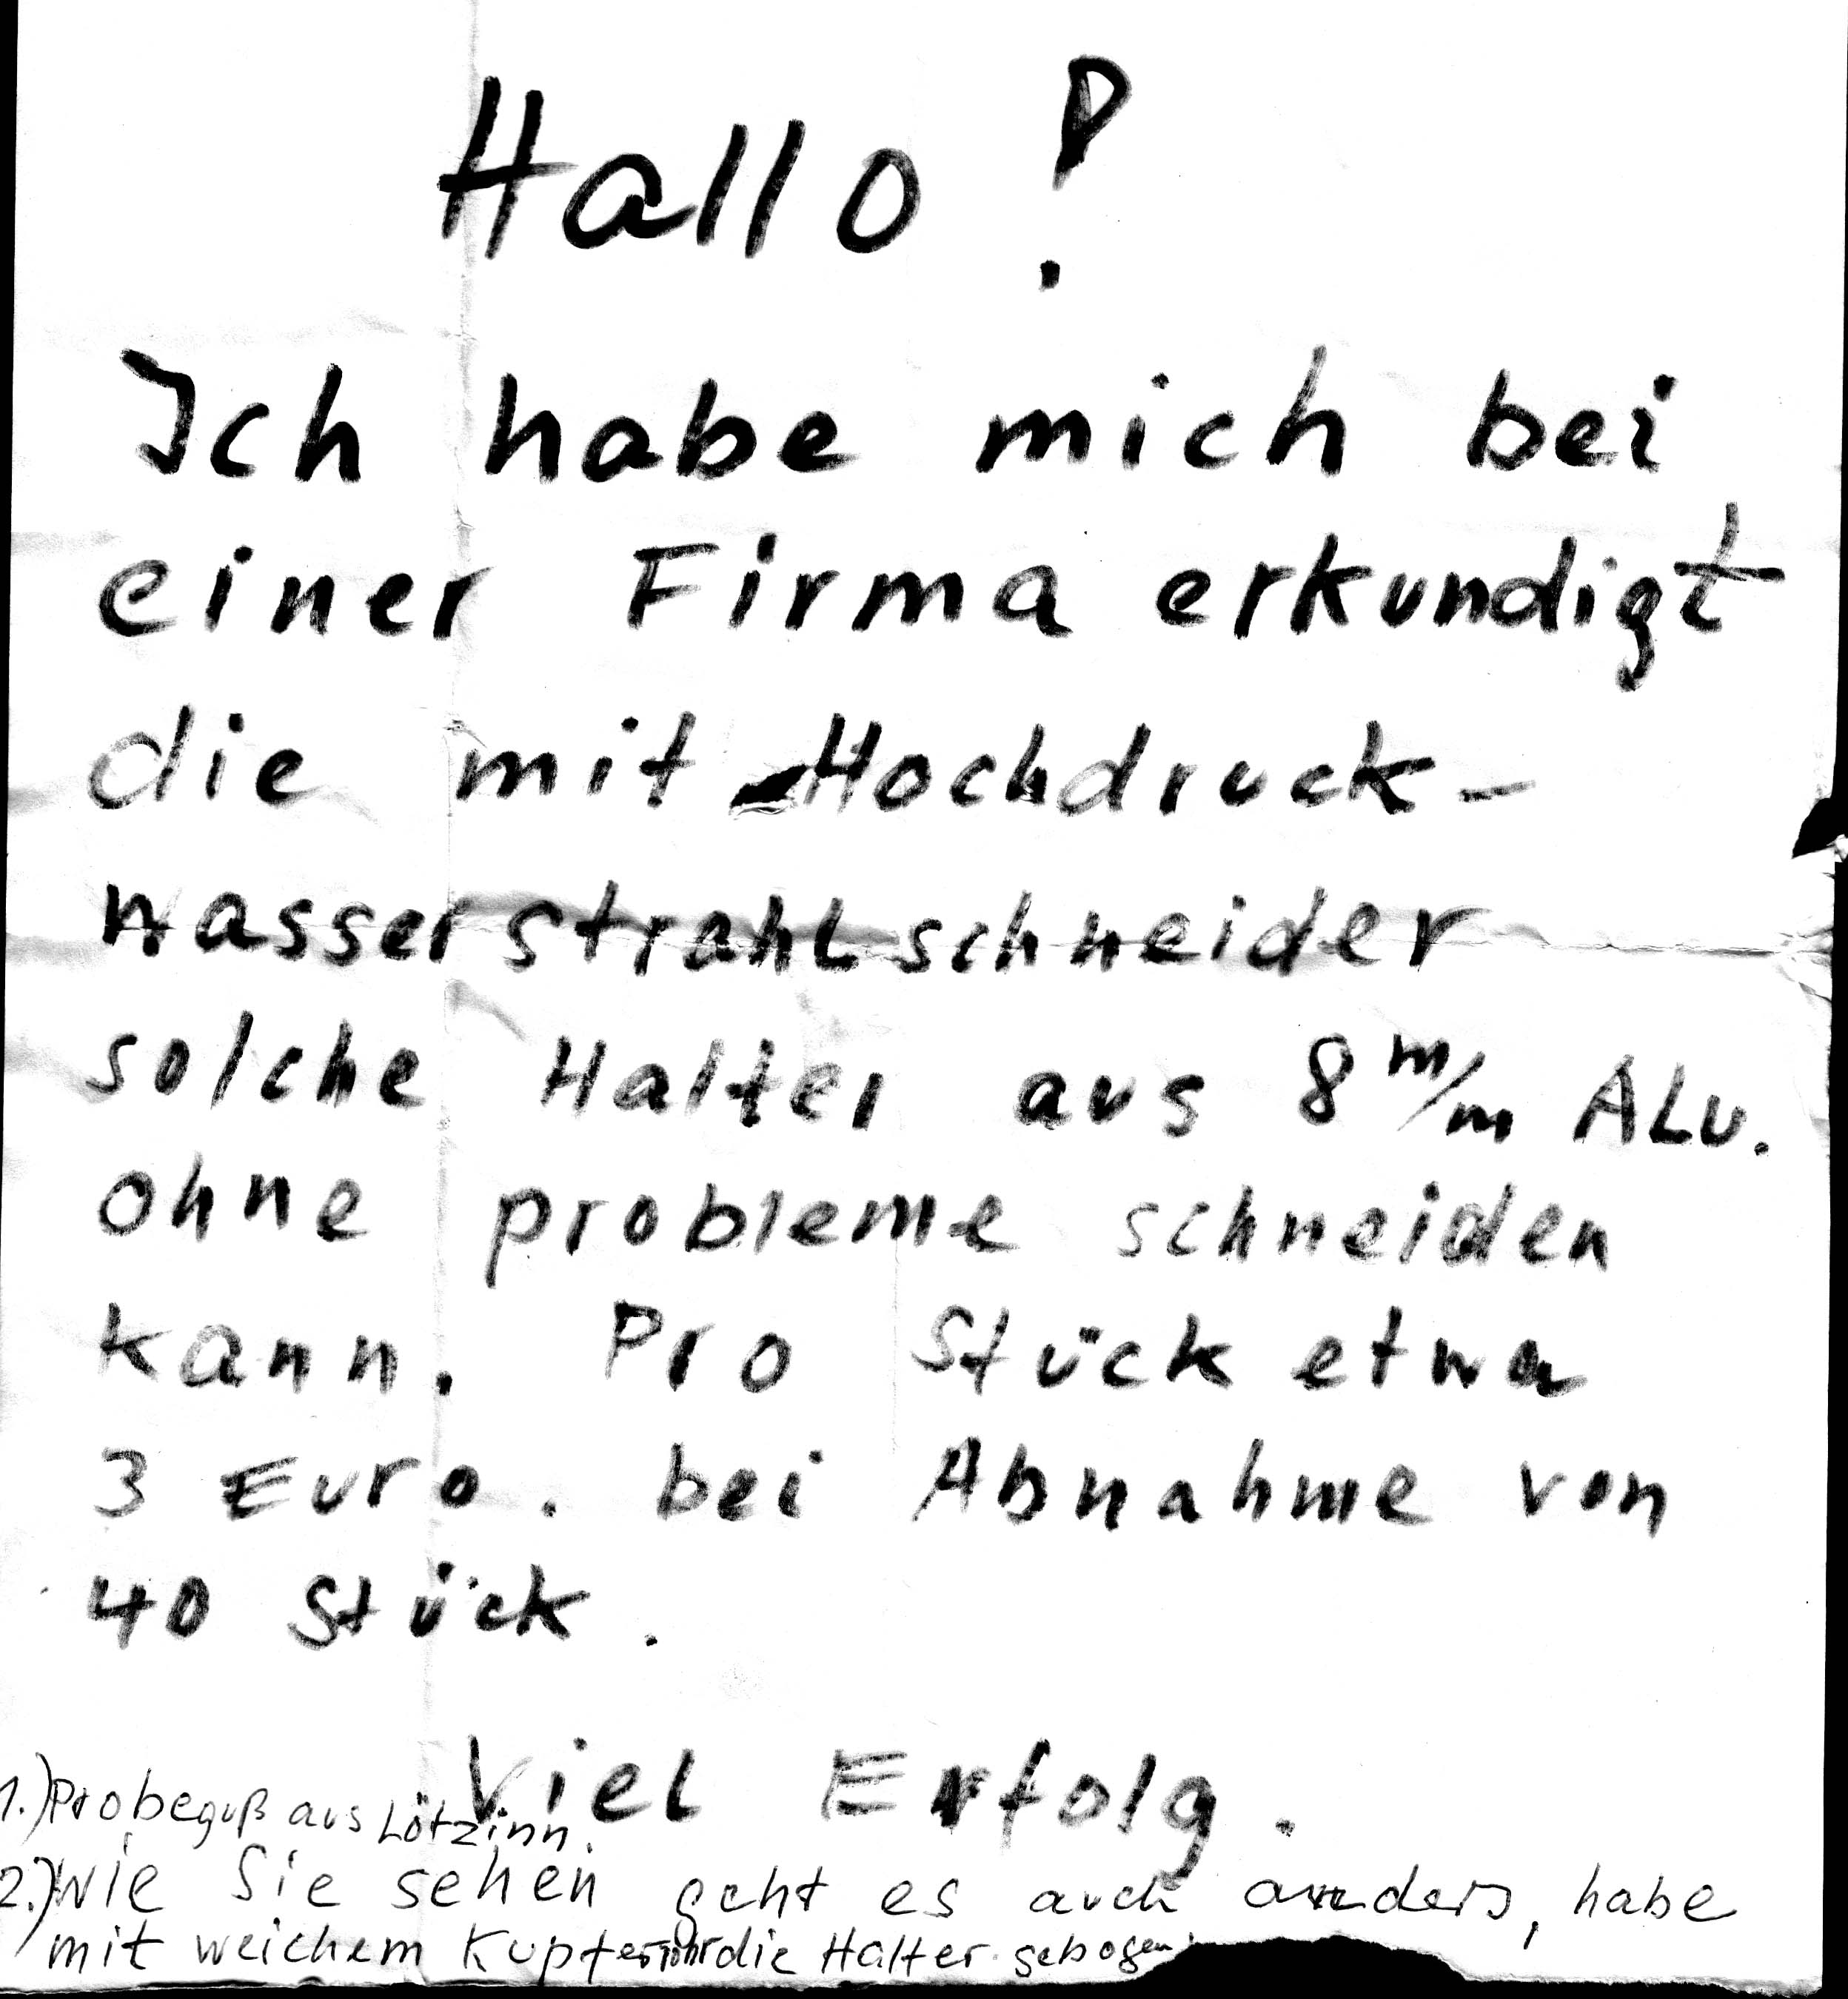 Hallo!
Ich habe mich bei
einer Firma erkundigt
die mit Hochdruck-
wasserstrahlschneider
solche Halter aus 8 m/m ALu.
ohne probleme schneiden
kann. Pro Stück etwa
3 Euro. bei Abnahme von
40 Stück.
Viel Erfolg.
1.) Probeguß aus Lötzinn.
2.) Wie Sie sehen geht es auch anders, habe
mit weichem Kupferrohr die Halter gebogen.